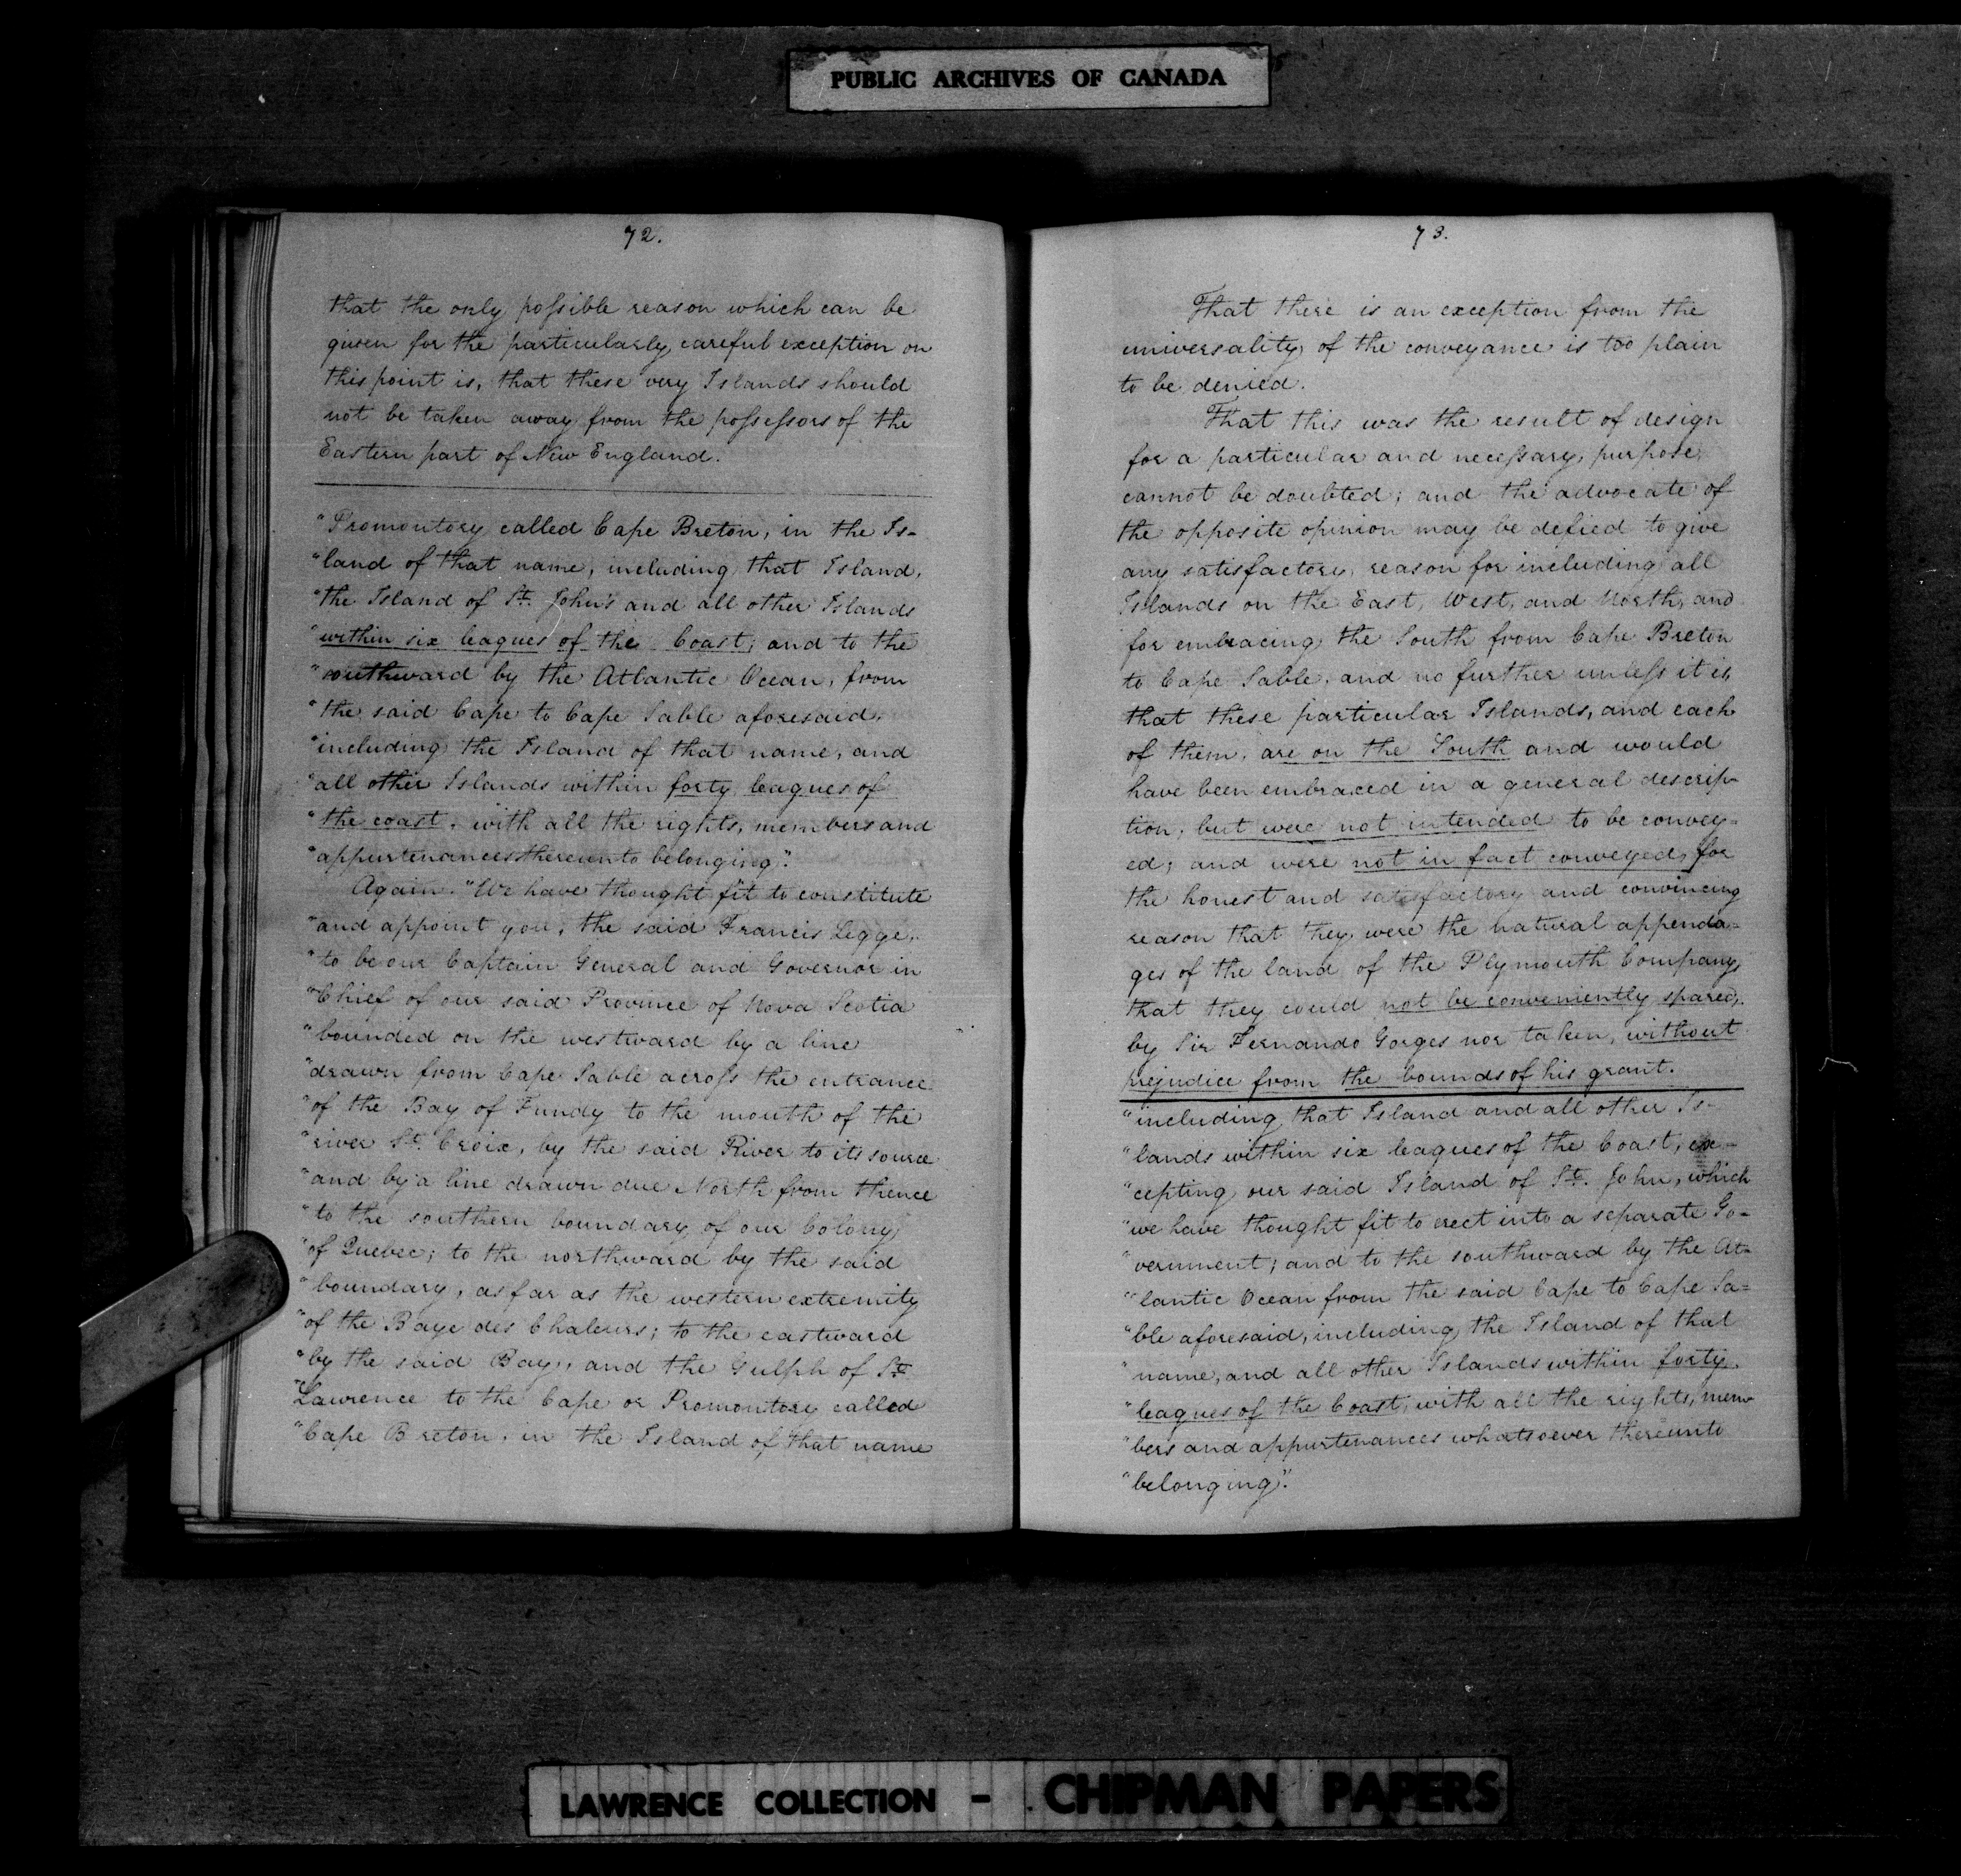 PUBLIC ARCHIVES OF CANADA
72.
that the only poſsible reason which can be
given for the particularly careful exception on
this point is, that these very Islands should
not be taken away from the poſseſsors of the
Eastern part of New England.
"Promontory called Cape Breton, in the Is-
"land of that name, including that Island,
"the Island of St. John's and all other Islands
"within six leagues of the Coast; and to the
"southward by the Atlantic Ocean, from
"the said Cape to Cape Sable aforesaid,
"including the Island of that name, and
"all other Islands within forty leagues of
"the coast, with all the rights, members and
"appurtenances thereunto belonging".
Again. "We have thought fit to constitute
"and appoint you, the said Francis Legge,
"to be our Captain General and Governor in
"Chief of our said Province of Nova Scotia
"bounded on the westward by a line
"drawn from Cape Sable acroſs the entrance
"of the Bay of Fundy to the mouth of the
"river St. Croix, by the said River to its source
"and by a line drawn due North from thence
"to the southern boundary of our Colony
"of Quebec; to the northward by the said
"boundary, as far as the western extremity
"of the Baye des Chaleurs; to the eastward
"by the said Bay, and the Gulph of St.
"Lawrence to the Cape or Promontory called
"Cape Breton, in the Island of that name
73.
That there is an exception from the
universality of the conveyance is too plain
to be denied.
That this was the result of design
for a particular and neceſsary purpose,
cannot be doubted; and the advocate of
the opposite opinion may be defied to give
any satisfactory reason for including all
Islands on the East, West, and North, and
for embracing the South from Cape Breton
to Cape Sable, and no further unleſs it is,
that these particular Islands, and each
of them, are on the South and would
have been embraced in a general descrip-
tion, but were not intended to be convey=
ed; and were not in fact conveyed, for
the honest and satisfactory and convincing
reason that they were the natural appenda=
ges of the land of the Plymouth Company,
that they could not be conveniently spared,
by Sir Fernando Gorges nor taken, without
prejudice from the bounds of his grant.
"including that Island and all other Is-
"lands within six leagues of the Coast, ex-
"cepting our said Island of St. John, which
"we have thought fit to erect into a separate Go=
"vernment; and to the southward by the At=
"lantic Ocean from the said Cape to Cape Sa=
"ble aforesaid, including the Island of that
"name, and all other Islands within forty
"leagues of the Coast, with all the rights, mem
"bers and appurtenances whatsoever thereunto
"belonging".
LAWRENCE COLLECTION - CHIPMAN PAPERS